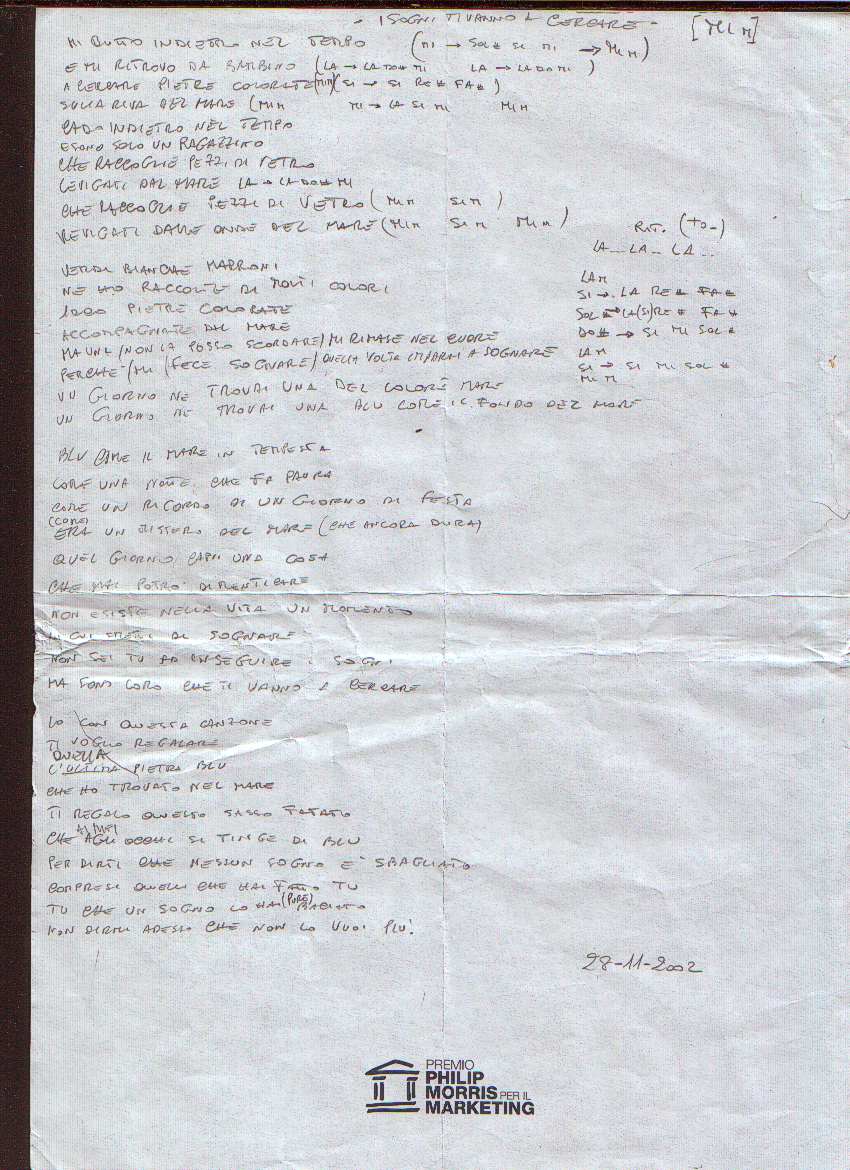 - I SOGNI TI VANNO A CERCARE - [MI m]
MI BUTTO INDIETRO NEL TEMPO (MI → SOL# SI MI → MI m)
E MI RITROVO DA BAMBINO (LA → LA DO# MI LA → LA DO MI)
A CERCARE PIETRE COLORATE (MI m) (SI → SI RE# FA#)
SULLA RIVA DEL MARE (MI m MI → LA SI MI MI m
CADO INDIETRO NEL TEMPO
E SONO SOLO UN RAGAZZINO
CHE RACCOGLIE PEZZI DI VETRO
LEVIGATI DAL MARE LA → LA DO# MI
CHE RACCOGLIE PEZZI DI VETRO (MI m SI m)
LEVIGATI DALLE ONDE DEL MARE (MI m SI m MI m)
RIT. (TO-)
LA... LA... LA...
LA m
SI → LA RE# FA#
SOL# → LA (SI) RE# FA#
DO# → SI MI SOL#
LA m
SI → SI MI SOL#
MI m
VERDI BIANCHE MARRONI
NE HO RACCOLTE DI MOLTI COLORI
1000 PIETRE COLORATE
ACCOMPAGNATE DAL MARE
MA UNA / NON LA POSSO SCORDARE / MI RIMASE NEL CUORE
PERCHÉ / MI / FECE SOGNARE / QUELLA VOLTA IMPARAI A SOGNARE
UN GIORNO NE TROVAI UNA DEL COLORE MARE
UN GIORNO NE TROVAI UNA BLU COME IL FONDO DEL MARE
BLU COME IL MARE IN TEMPESTA
COME UNA NOTTE CHE FA PAURA
COME UN RICORDO DI UN GIORNO DI FESTA
(COME)
ERA UN MISTERO DEL MARE (CHE ANCORA DURA)
QUEL GIORNO CAPII UNA COSA
CHE MAI POTRO' DIMENTICARE
NON ESISTE NELLA VITA UN MOMENTO
IN CUI SMETTI DI SOGNARE
NON SEI TU AD INSEGUIRE I SOGNI
MA SONO LORO CHE TI VANNO A CERCARE
IO CON QUESTA CANZONE
TI VOGLIO REGALARE
QUELLA
L'ULTIMA PIETRA BLU
CHE HO TROVATO NEL MARE
TI REGALO QUESTO SASSO FATATO
AI MIEI
CHE AGLI OCCHI SI TINGE DI BLU
PER DIRTI CHE NESSUN SOGNO E' SBAGLIATO
COMPRESI QUELLI CHE HAI FATTO TU
TU CHE UN SOGNO LO HAI (PURE) BACIATO
NON DIRMI ADESSO CHE NON LO VUOI PIU'.
28-11-2002
PREMIO
PHILIP
MORRIS PER IL
MARKETING